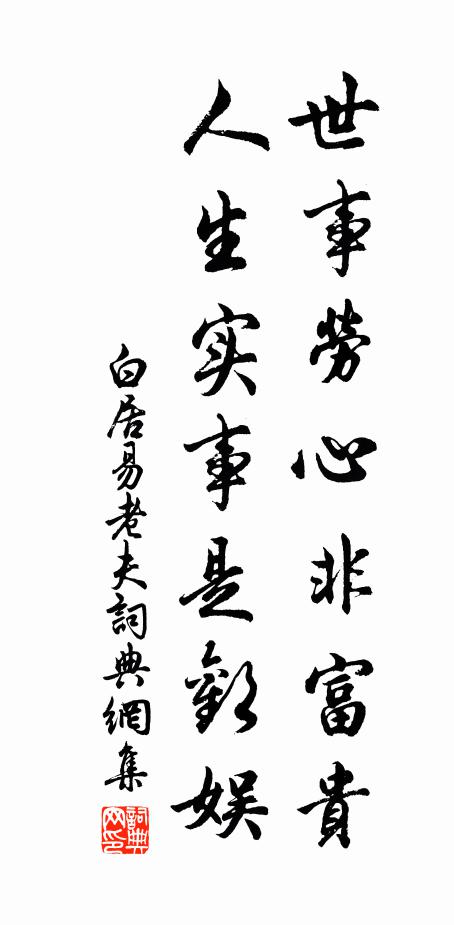 世事勞心非富貴
人生实事是歡娱
白居易老夫詞典網集
詞典
网印